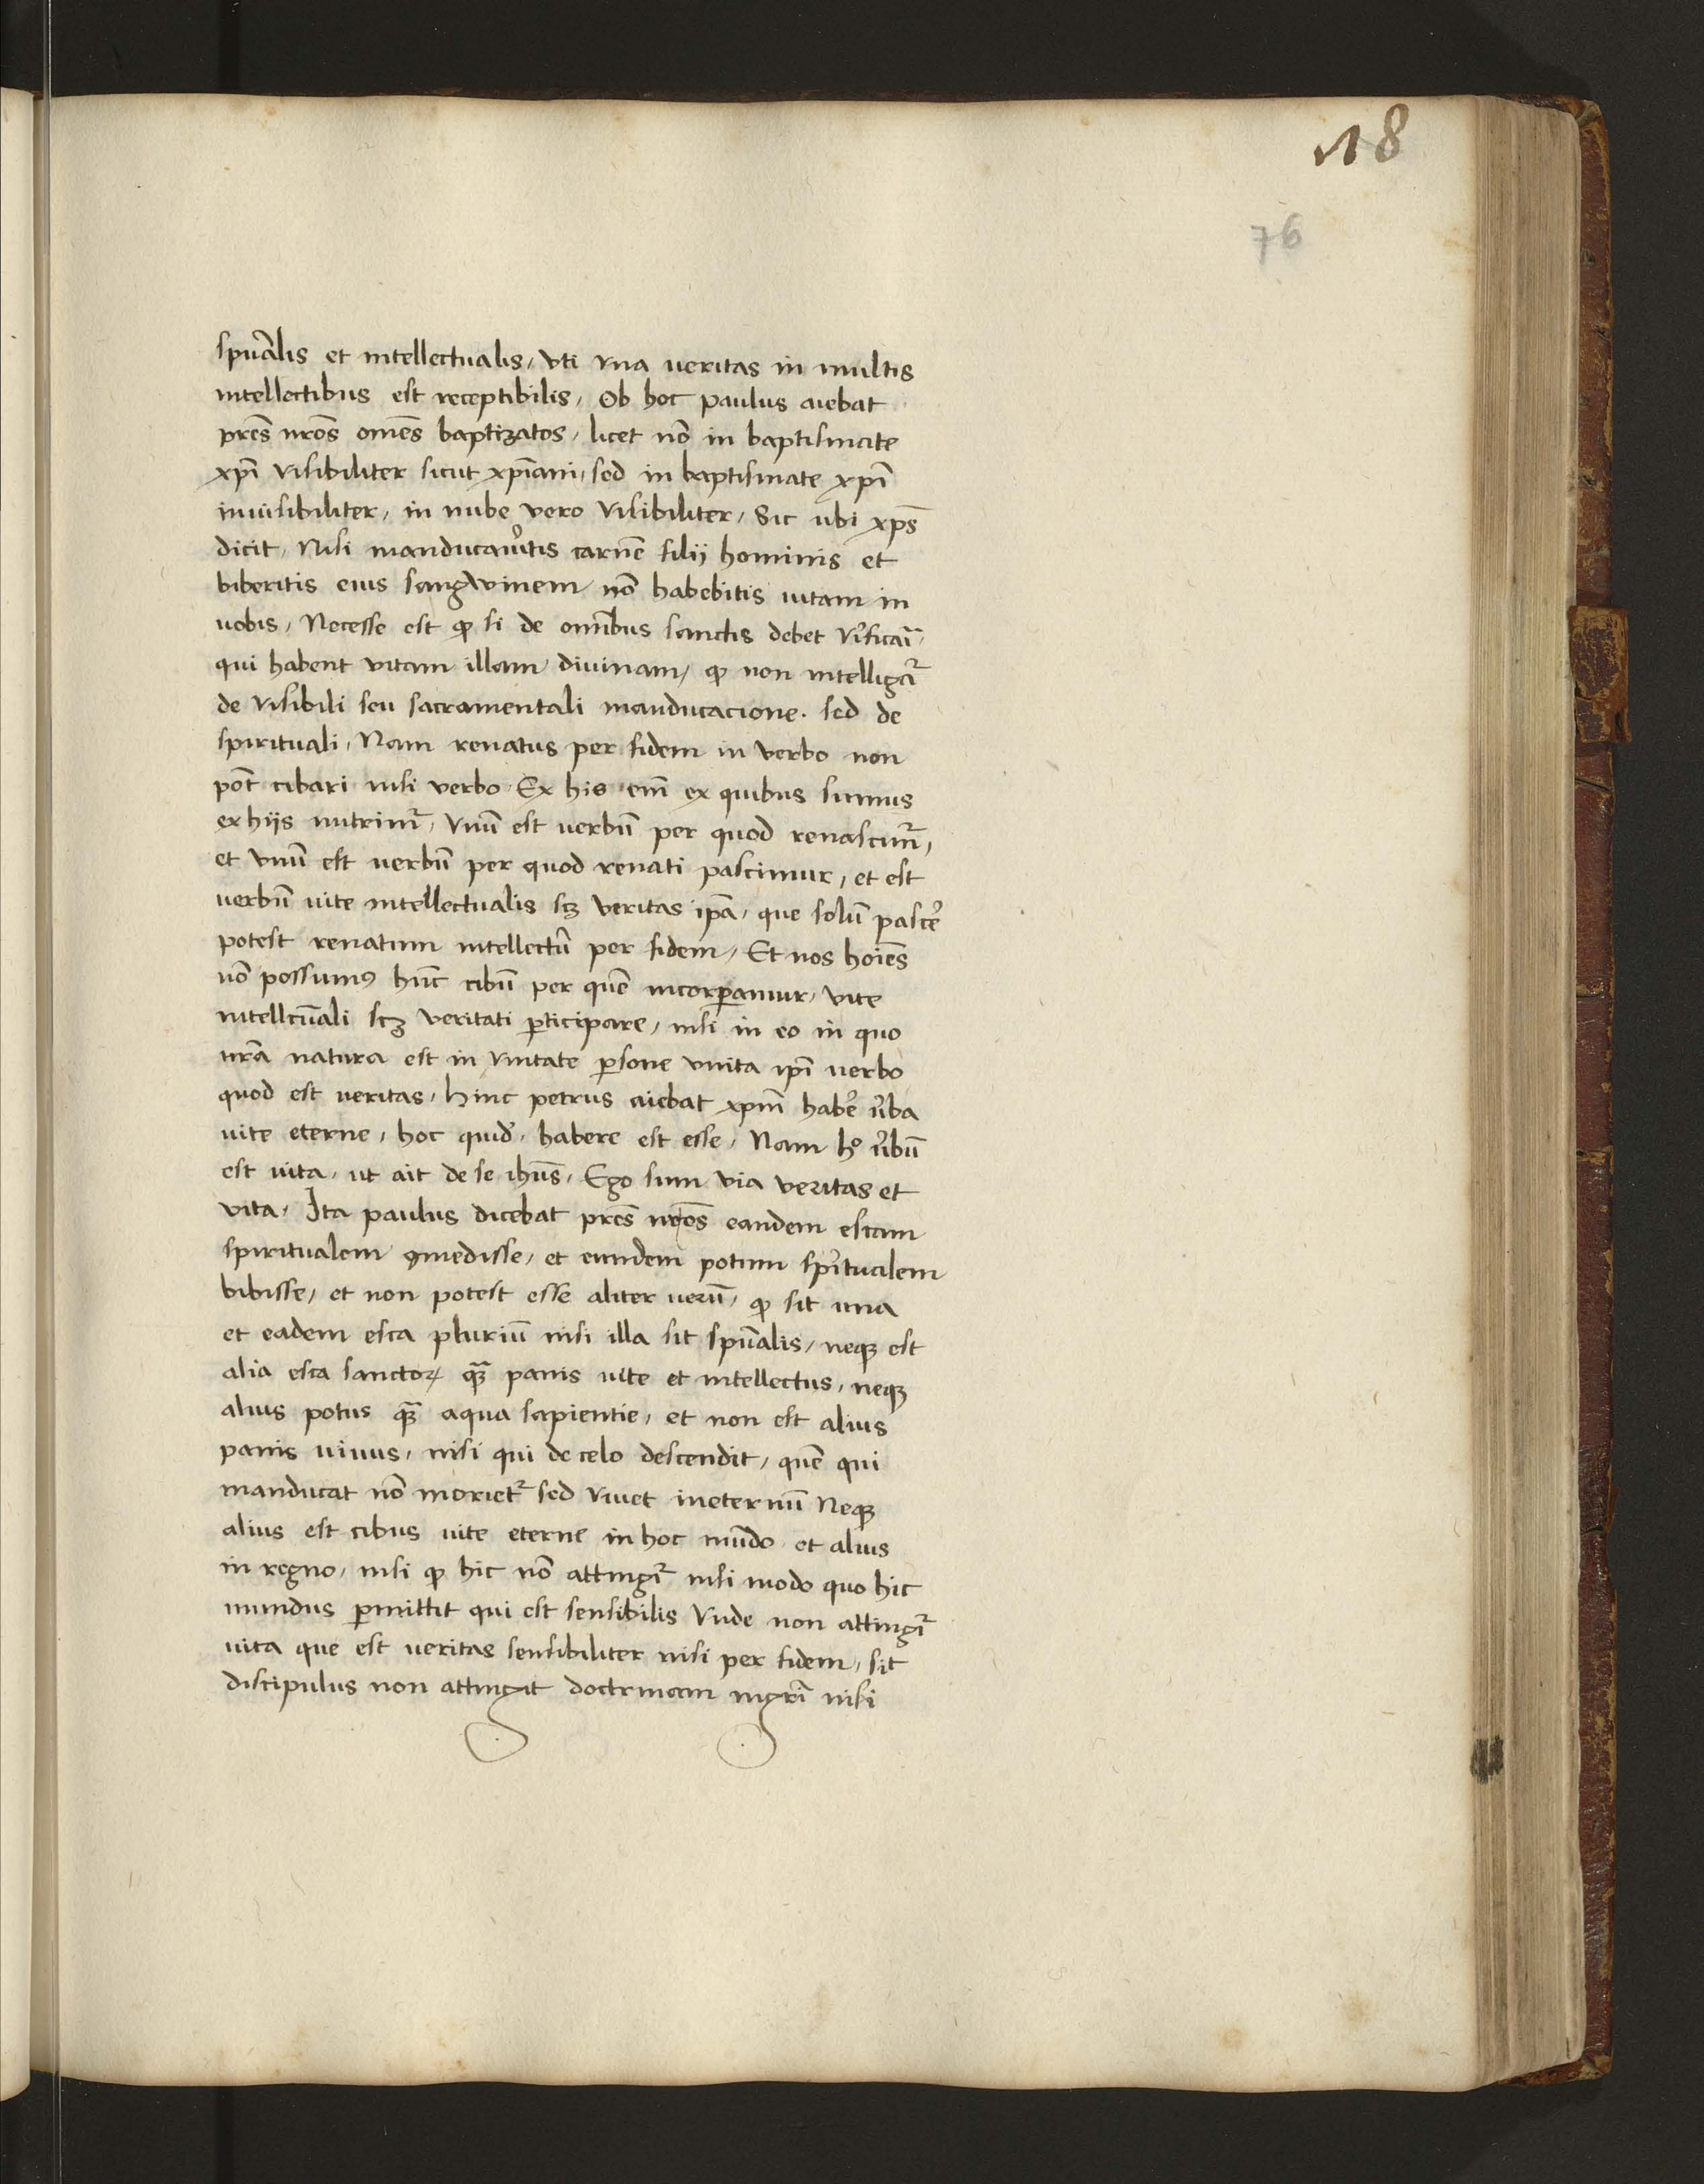 18
76
spūalis et intellectualis, vti vna veritas in multis
intellectibus est receptibilis, Ob hoc paulus aiebat
pr̄es nr̄os om̄es baptizatos, licet nō in baptismate
xp̄i visibiliter sicut xp̄iani, sed in baptismate xp̄i
inuisibiliter, in nube vero visibiliter, Sic ubi xp̄s
dicit, Nisi manducau̾itis carnē filij hominis et
biberitis eius sangwinem nō habebitis uitam in
uobis, Necesse est ꝙ si de omībus sanctis debet v̾ificari,
qui habent vitam illam diuinam, ꝙ non intelligat̾
de visibili seu sacramentali manducacione. sed de
spirituali, Nam renatus per fidem in verbo non
pōt cibari nisi verbo. Ex his em̄ ex quibus sumus
ex hijs nutrim̾, vnū est uerbū per quod renascim̾,
et vnū est uerbū per quod renati pascimur, et est
uerbū uite intellectualis scꝫ veritas ip̄a, que solū pasce̾
potest renatum intellectū per fidem, Et nos hoīes
nō possumꝰ hūc cibū per quē incorꝑamur, vite
intellcūali scꝫ veritati ꝑticipare, nisi in eo in quo
nr̄a natura est in vnitate ꝑsone vnita ip̄i uerbo
quod est ueritas, hinc petrus aiebat xp̄m habe̾ u̾ba
uite eterne, hoc quid̾, habere est esse, Nam hº u̾bū
est uita, ut ait de se ihūs, Ego sum via veritas et
vita, Ita paulus dicebat pr̄es nr̄os eandem escam
spiritualem ꝯmedisse, et eundem potum sp̄itualem
bibisse, et non potest esse aliter uerū, ꝙ sit una
et eadem esca pluriū nisi illa sit spūalis, neqꝫ est
alia esca sanctoꝝ qꝫ̄ panis uite et intellectus, neqꝫ
alius potus qꝫ̄ aqua sapientie, et non est alius
panis uiuus, nisi qui de celo descendit, quē qui
manducat nō moriet̾ sed viuet ineternū Neqꝫ
alius est cibus uite eterne in hoc mūdo et alius
in regno, nisi ꝙ hic nō attingit̾ nisi modo quo hic
mundus ꝑmittit qui est sensibilis Vnde non attingit̾
uita que est ueritas sensibiliter nisi per fidem, sic
discipulus non attingit doctrinam mgr̄i nisi